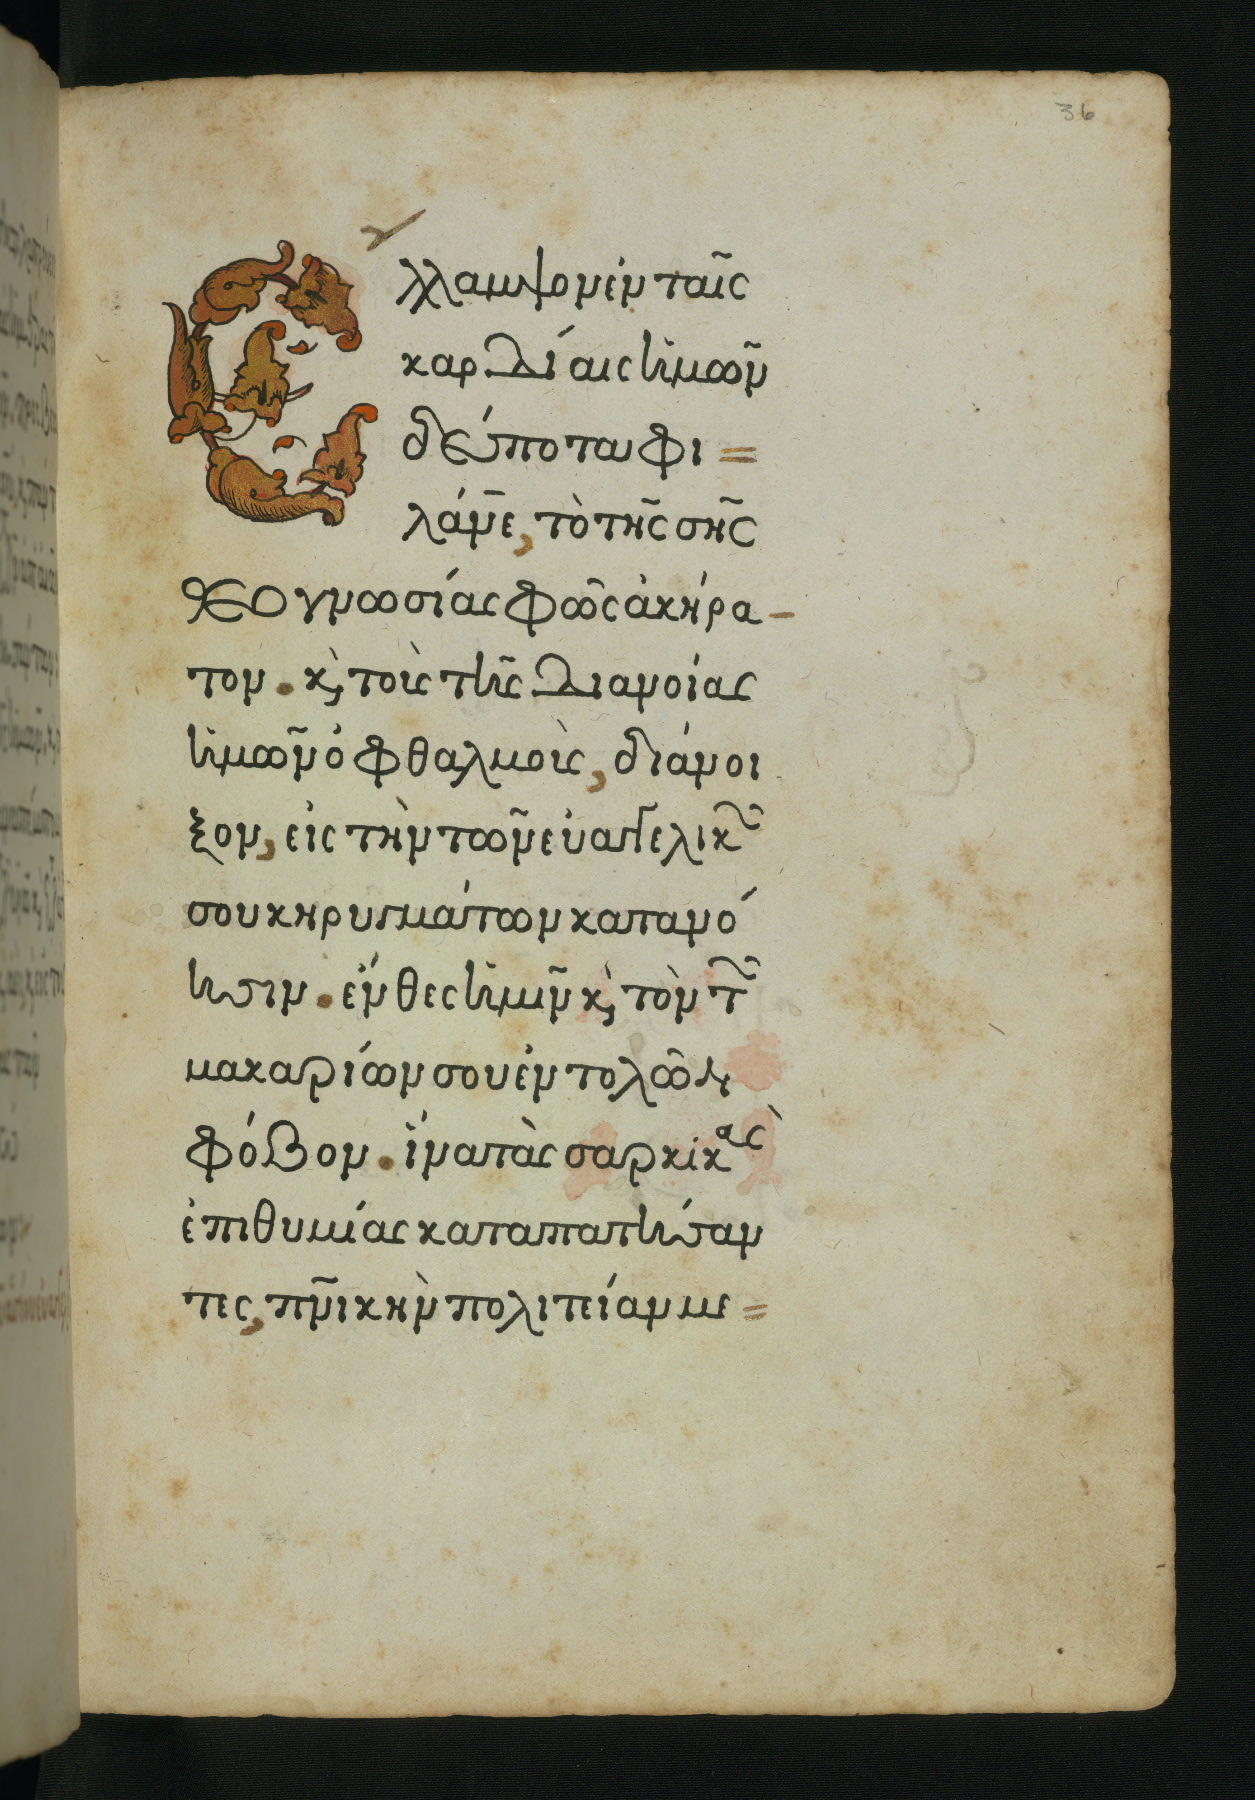 36
Ἔλλαμψον ἐν ταῖς
καρδίαις ἡμῶν
δέσποτα φι=
λάν̅ε, τὸ τῆς σῆς
θεογνωσίας φῶς ἀκήρα-
τον. κ̀, τοὺς τῆς διανοίας
ἡμῶν ὀφθαλμοὺς, διάνοι
ξον, εἰς τὴν τῶν εὐαγγελικῶν
σου κηρυγμάτων κατανό
ησιν. ἔνθες ἡμῖν κ̀, τὸν τῶν
μακαρίων σου ἐντολῶν
φόβον. ἵνα τὰς σαρκικὰς
ἐπιθυμίας καταπατήσαν
τες, πν̅ικὴν πολιτείαν με=